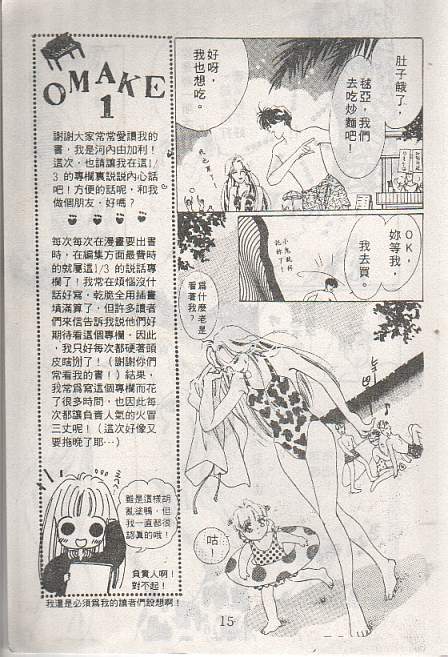 OMAKE
1
謝謝大家常常愛讀我的
書，我是河內由加利！
這次，也請讓我在這1/
3的專欄裏說說內心話
吧！方便的話呢，和我
做個朋友，好嗎？
每次每次在漫畫要出書
時，在編集方面最費時
的就屬這1/3的說話專
欄了！我常在煩惱沒什
話好寫，乾脆全用插畫
填滿算了，但許多讀者
們來信告訴我說他們好
期待看這個專欄，因此
，我只好每次都硬著頭
皮瞎掰了！（謝謝你們
常看我的書！）結果，
我常爲寫這個專欄而花
了很多時間，也因此每
次都讓負責人氣的火冒
三丈呢！（這次好像又
要拖晚了耶…）
雖是這樣胡
亂塗鴨，但
我一直都很
認真的哦！
負責人啊！
對不起！
我還是必須為我的讀者們設想啊！
肚子餓了，
毬亞，我們
去吃炒麵吧！
好呀，
我也想吃。
我也要
OK，
妳等我，
我去買。
為什麼老是
看著我？
咕！
15